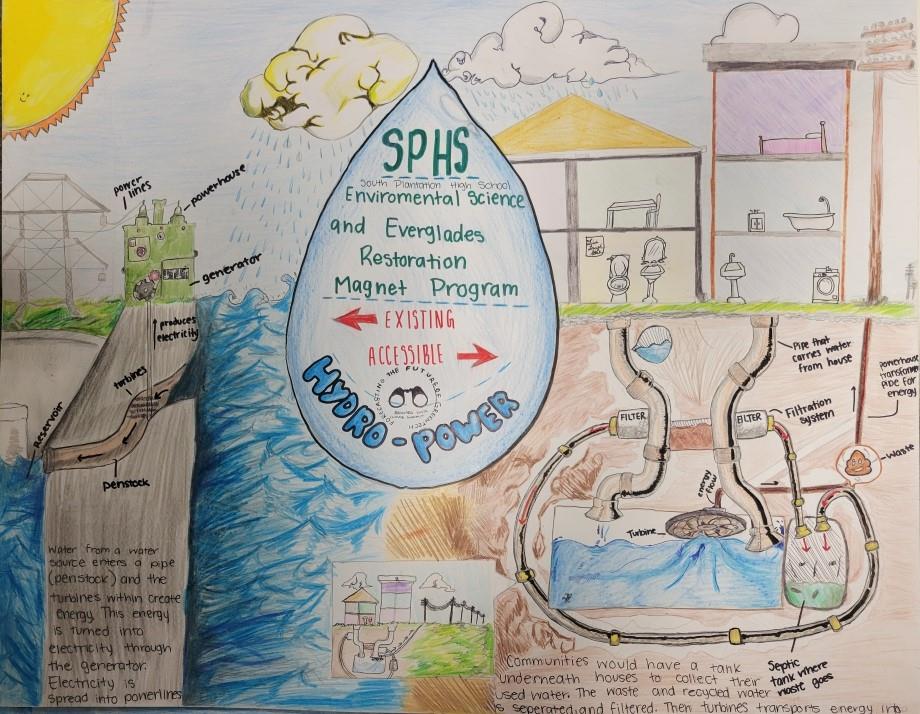 SPHS
South Plantation High School
Enviromental Science
and Everglades
Restoration
Magnet Program
EXISTING
ACCESSIBLE
FORECASTING THE FUTURE OF GREEN TECH
HYDRO-POWER
power
lines
powerhouse
generator
produces
electricity
turbines
Reservoir
penstock
Water from a water
source enters a pipe
(penstock) and the
turbines within create
energy. This energy
is turned into
electricity through
the generator.
Electricity is
spread into powerlines
Pipe that
carries water
from house
powerhouse
transformer
pipe for
energy
FILTER
FILTER
Filtration
system
waste
energy
flow
Turbine
Septic
tank where
waste goes
Communities would have a tank
underneath houses to collect their
used water. The waste and recycled water
is seperated and filtered. Then turbines transports energy into